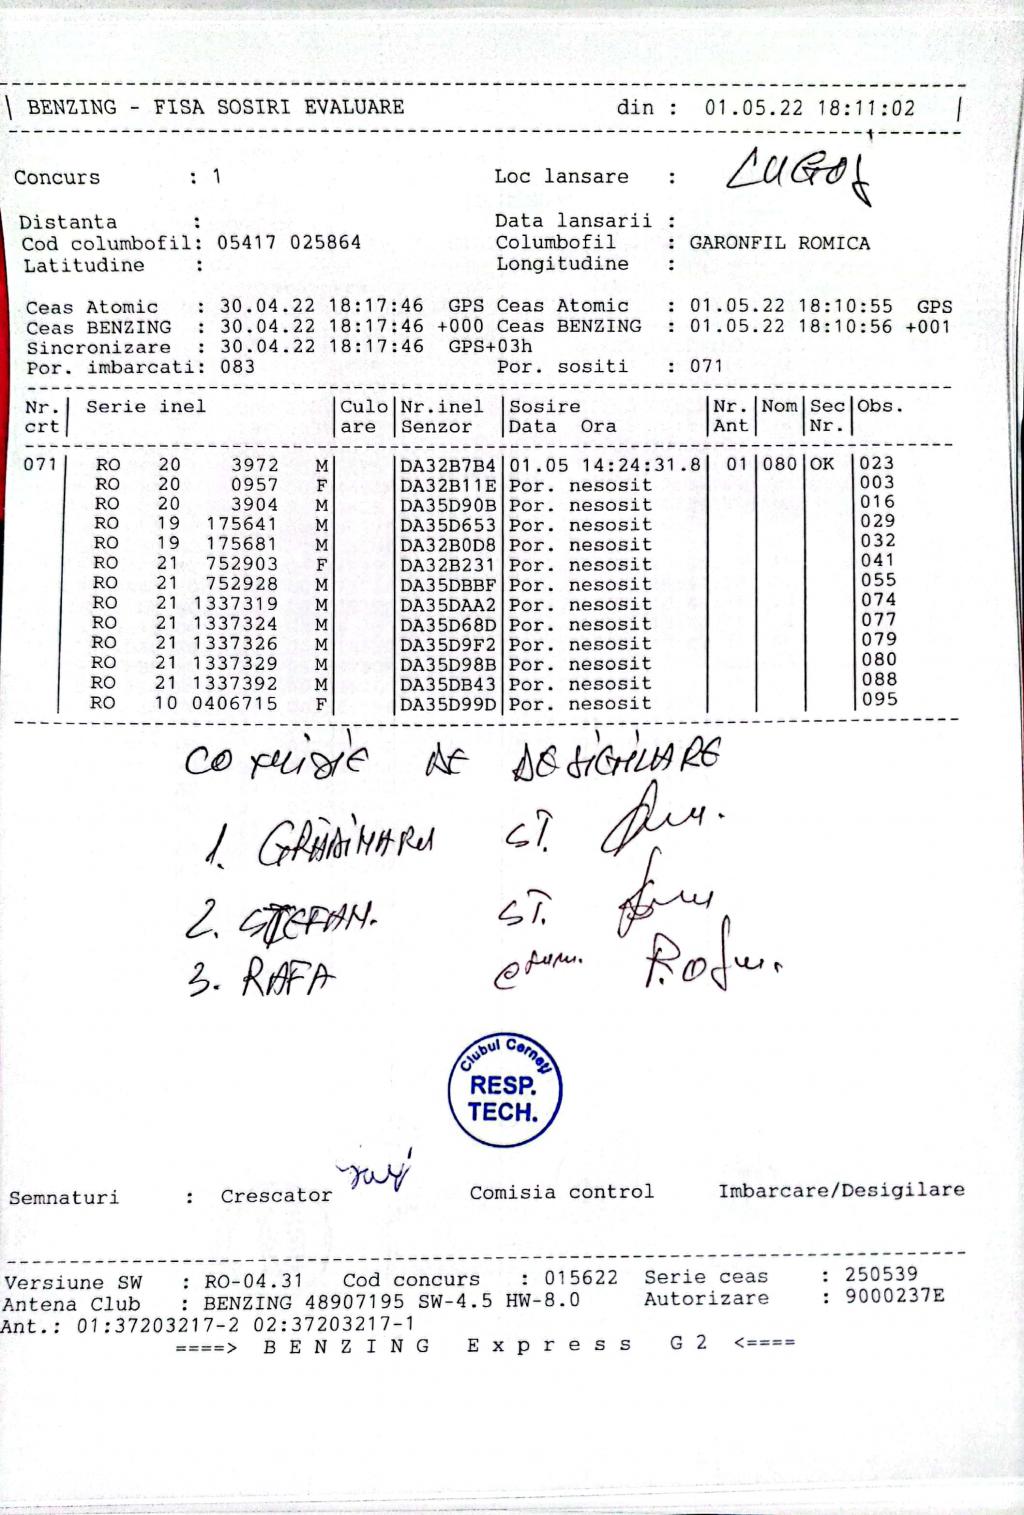 BENZING - FISA SOSIRI EVALUARE din : 01.05.22 18:11:02
Concurs : 1 Loc lansare : LUGOJ
Distanta : Data lansarii :
Cod columbofil: 05417 025864 Columbofil : GARONFIL ROMICA
Latitudine : Longitudine :
Ceas Atomic : 30.04.22 18:17:46 GPS Ceas Atomic : 01.05.22 18:10:55 GPS
Ceas BENZING : 30.04.22 18:17:46 +000 Ceas BENZING : 01.05.22 18:10:56 +001
Sincronizare : 30.04.22 18:17:46 GPS+03h
Por. imbarcati: 083 Por. sositi : 071
Nr. Serie inel Culo Nr.inel Sosire Nr. Nom Sec Obs.
crt are Senzor Data Ora Ant Nr.
071 RO 20 3972 M DA32B7B4 01.05 14:24:31.8 01 080 OK 023
RO 20 0957 F DA32B11E Por. nesosit 003
RO 20 3904 M DA35D90B Por. nesosit 016
RO 19 175641 M DA35D653 Por. nesosit 029
RO 19 175681 M DA32B0D8 Por. nesosit 032
RO 21 752903 F DA32B231 Por. nesosit 041
RO 21 752928 M DA35DBBF Por. nesosit 055
RO 21 1337319 M DA35DAA2 Por. nesosit 074
RO 21 1337324 M DA35D68D Por. nesosit 077
RO 21 1337326 M DA35D9F2 Por. nesosit 079
RO 21 1337329 M DA35D98B Por. nesosit 080
RO 21 1337392 M DA35DB43 Por. nesosit 088
RO 10 0406715 F DA35D99D Por. nesosit 095
COMISIE DE DESIGILARE
1. GRĂDINARU ST.
2. ȘTEFAN. ST.
3. RAFA
Clubul Cerneți
RESP.
TECH.
Semnaturi : Crescator Comisia control Imbarcare/Desigilare
Versiune SW : RO-04.31 Cod concurs : 015622 Serie ceas : 250539
Antena Club : BENZING 48907195 SW-4.5 HW-8.0 Autorizare : 9000237E
Ant.: 01:37203217-2 02:37203217-1
====> B E N Z I N G E x p r e s s G 2 <====